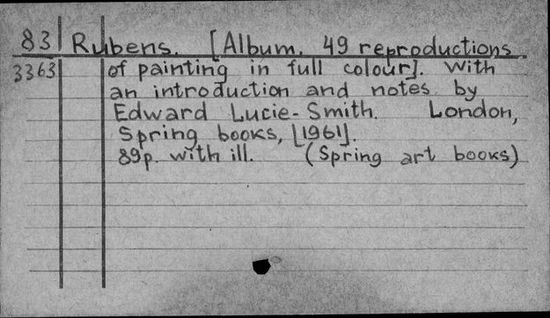 83 Rubens. [Album. 49 reproductions
3363 of painting in full colour]. With
an introduction and notes by
Edward Lucie-Smith. London,
Spring books, [1961].
89p. with ill. (Spring art books)